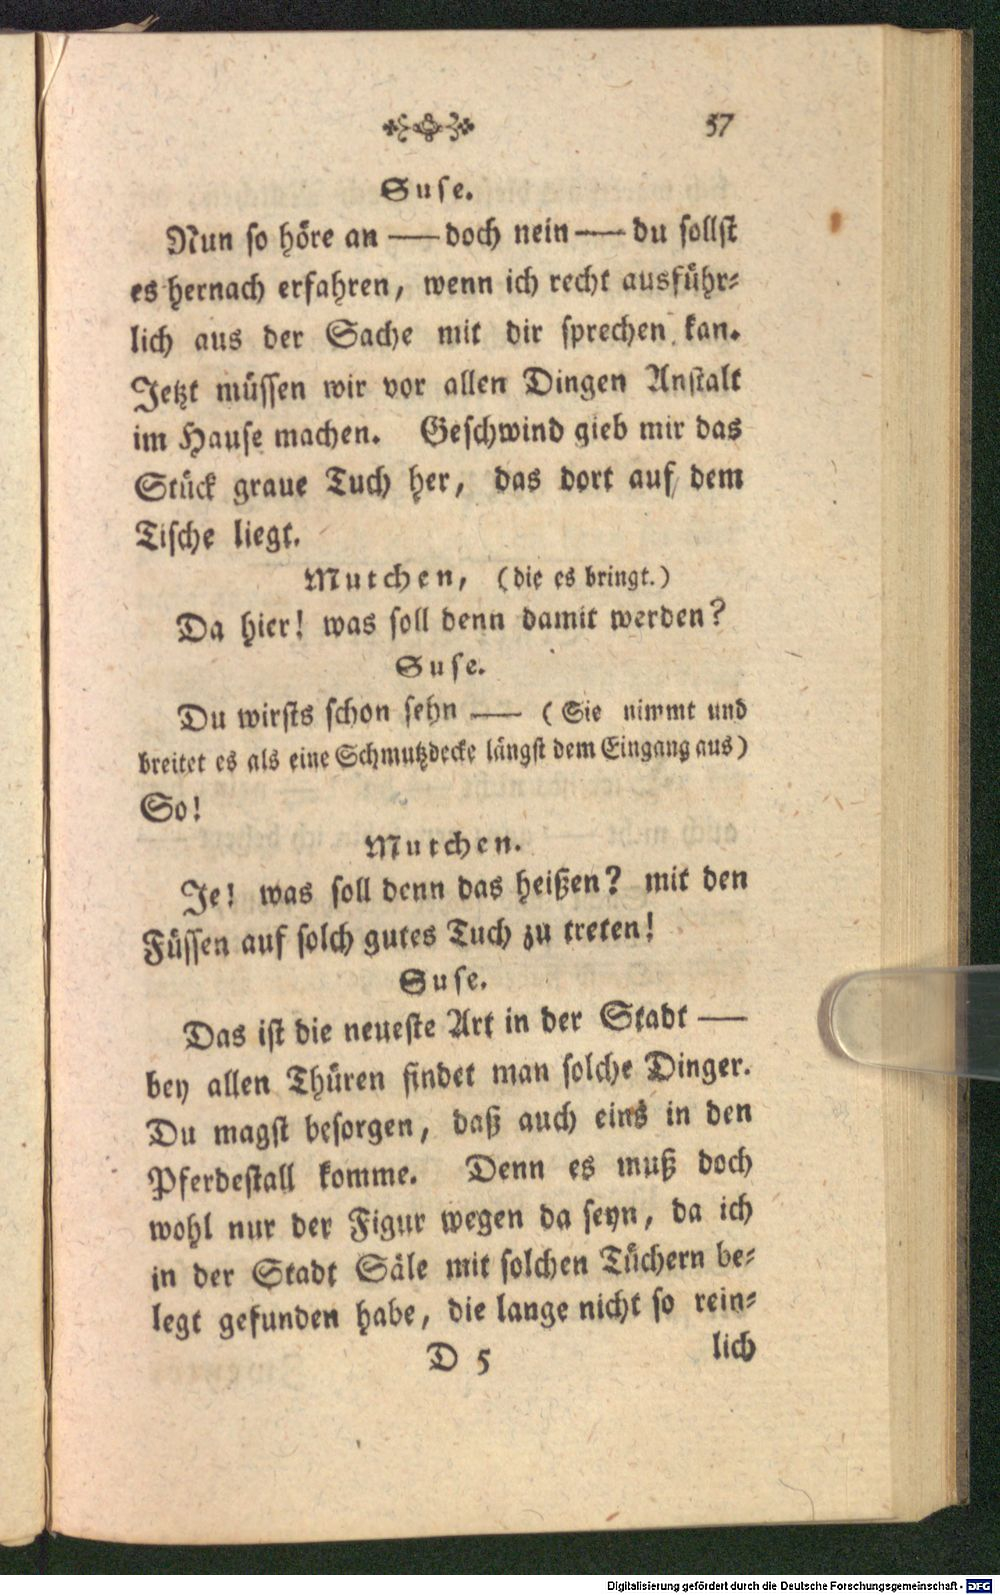 57
Suse.
Nun so höre an — doch nein — du sollst
es hernach erfahren, wenn ich recht ausführ-
lich aus der Sache mit dir sprechen kan.
Jetzt müssen wir vor allen Dingen Anstalt
im Hause machen. Geschwind gieb mir das
Stück graue Tuch her, das dort auf dem
Tische liegt.
Mutchen, (die es bringt.)
Da hier! was soll denn damit werden?
Suse.
Du wirsts schon sehn — (Sie nimmt und
breitet es als eine Schmutzdecke längst dem Eingang aus)
So!
Mutchen.
Je! was soll denn das heißen? mit den
Füssen auf solch gutes Tuch zu treten!
Suse.
Das ist die neueste Art in der Stadt —
bey allen Thüren findet man solche Dinger.
Du magst besorgen, daß auch eins in den
Pferdestall komme. Denn es muß doch
wohl nur der Figur wegen da seyn, da ich
in der Stadt Säle mit solchen Tüchern be-
legt gefunden habe, die lange nicht so rein-
D 5 lich
Digitalisierung gefördert durch die Deutsche Forschungsgemeinschaft - DFG